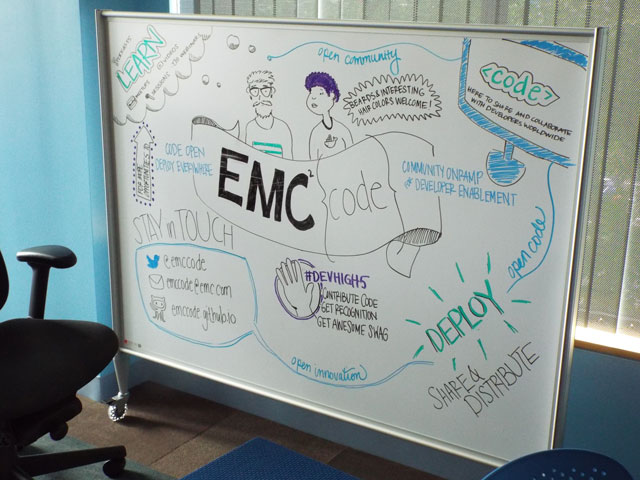 LEARN
open community
BEARDS & INTERESTING
HAIR COLORS WELCOME!
<code>
HERE TO SHARE AND COLLABORATE
WITH DEVELOPERS WORLDWIDE
CODE OPEN
DEPLOY EVERYWHERE
EMC²
{code}
COMMUNITY ONRAMP
& DEVELOPER ENABLEMENT
STAY in TOUCH
@emccode
emccode@emc.com
emccode.github.io
#DEVHIGH5
CONTRIBUTE CODE
GET RECOGNITION
GET AWESOME SWAG
open code
DEPLOY
SHARE &
DISTRIBUTE
open innovation